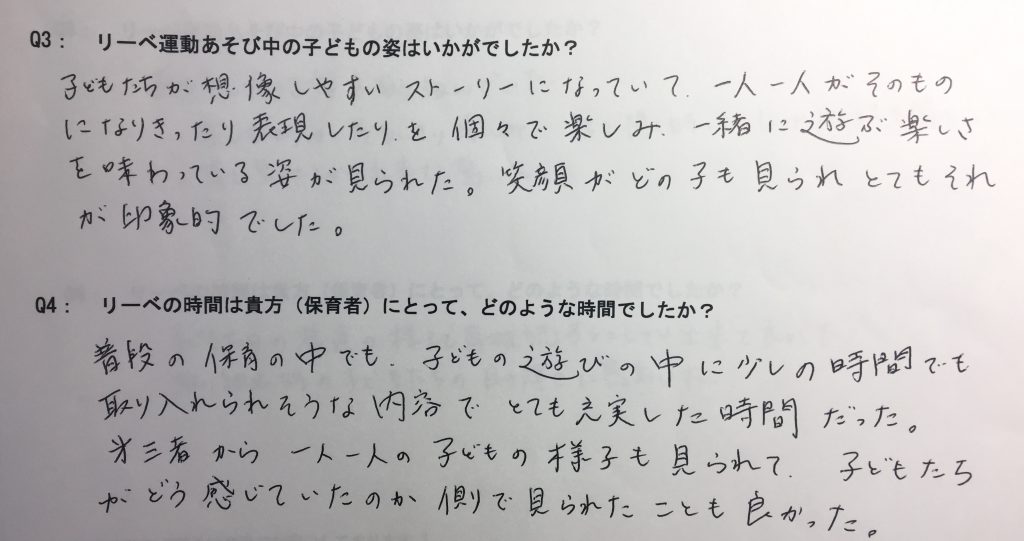 Q3： リーベ運動あそび中の子どもの姿はいかがでしたか？
子どもたちが想像しやすいストーリーになっていて、一人一人がそのもの
になりきったり表現したり、を個々で楽しみ、一緒に遊ぶ楽しさ
を味わっている姿が見られた。笑顔がどの子も見られとてもそれ
が印象的でした。
Q4： リーベの時間は貴方（保育者）にとって、どのような時間でしたか？
普段の保育の中でも、子どもの遊びの中に少しの時間でも
取り入れられそうな内容でとても充実した時間だった。
第三者から一人一人の子どもの様子も見られて、子どもたち
がどう感じていたのか側で見られたことも良かった。